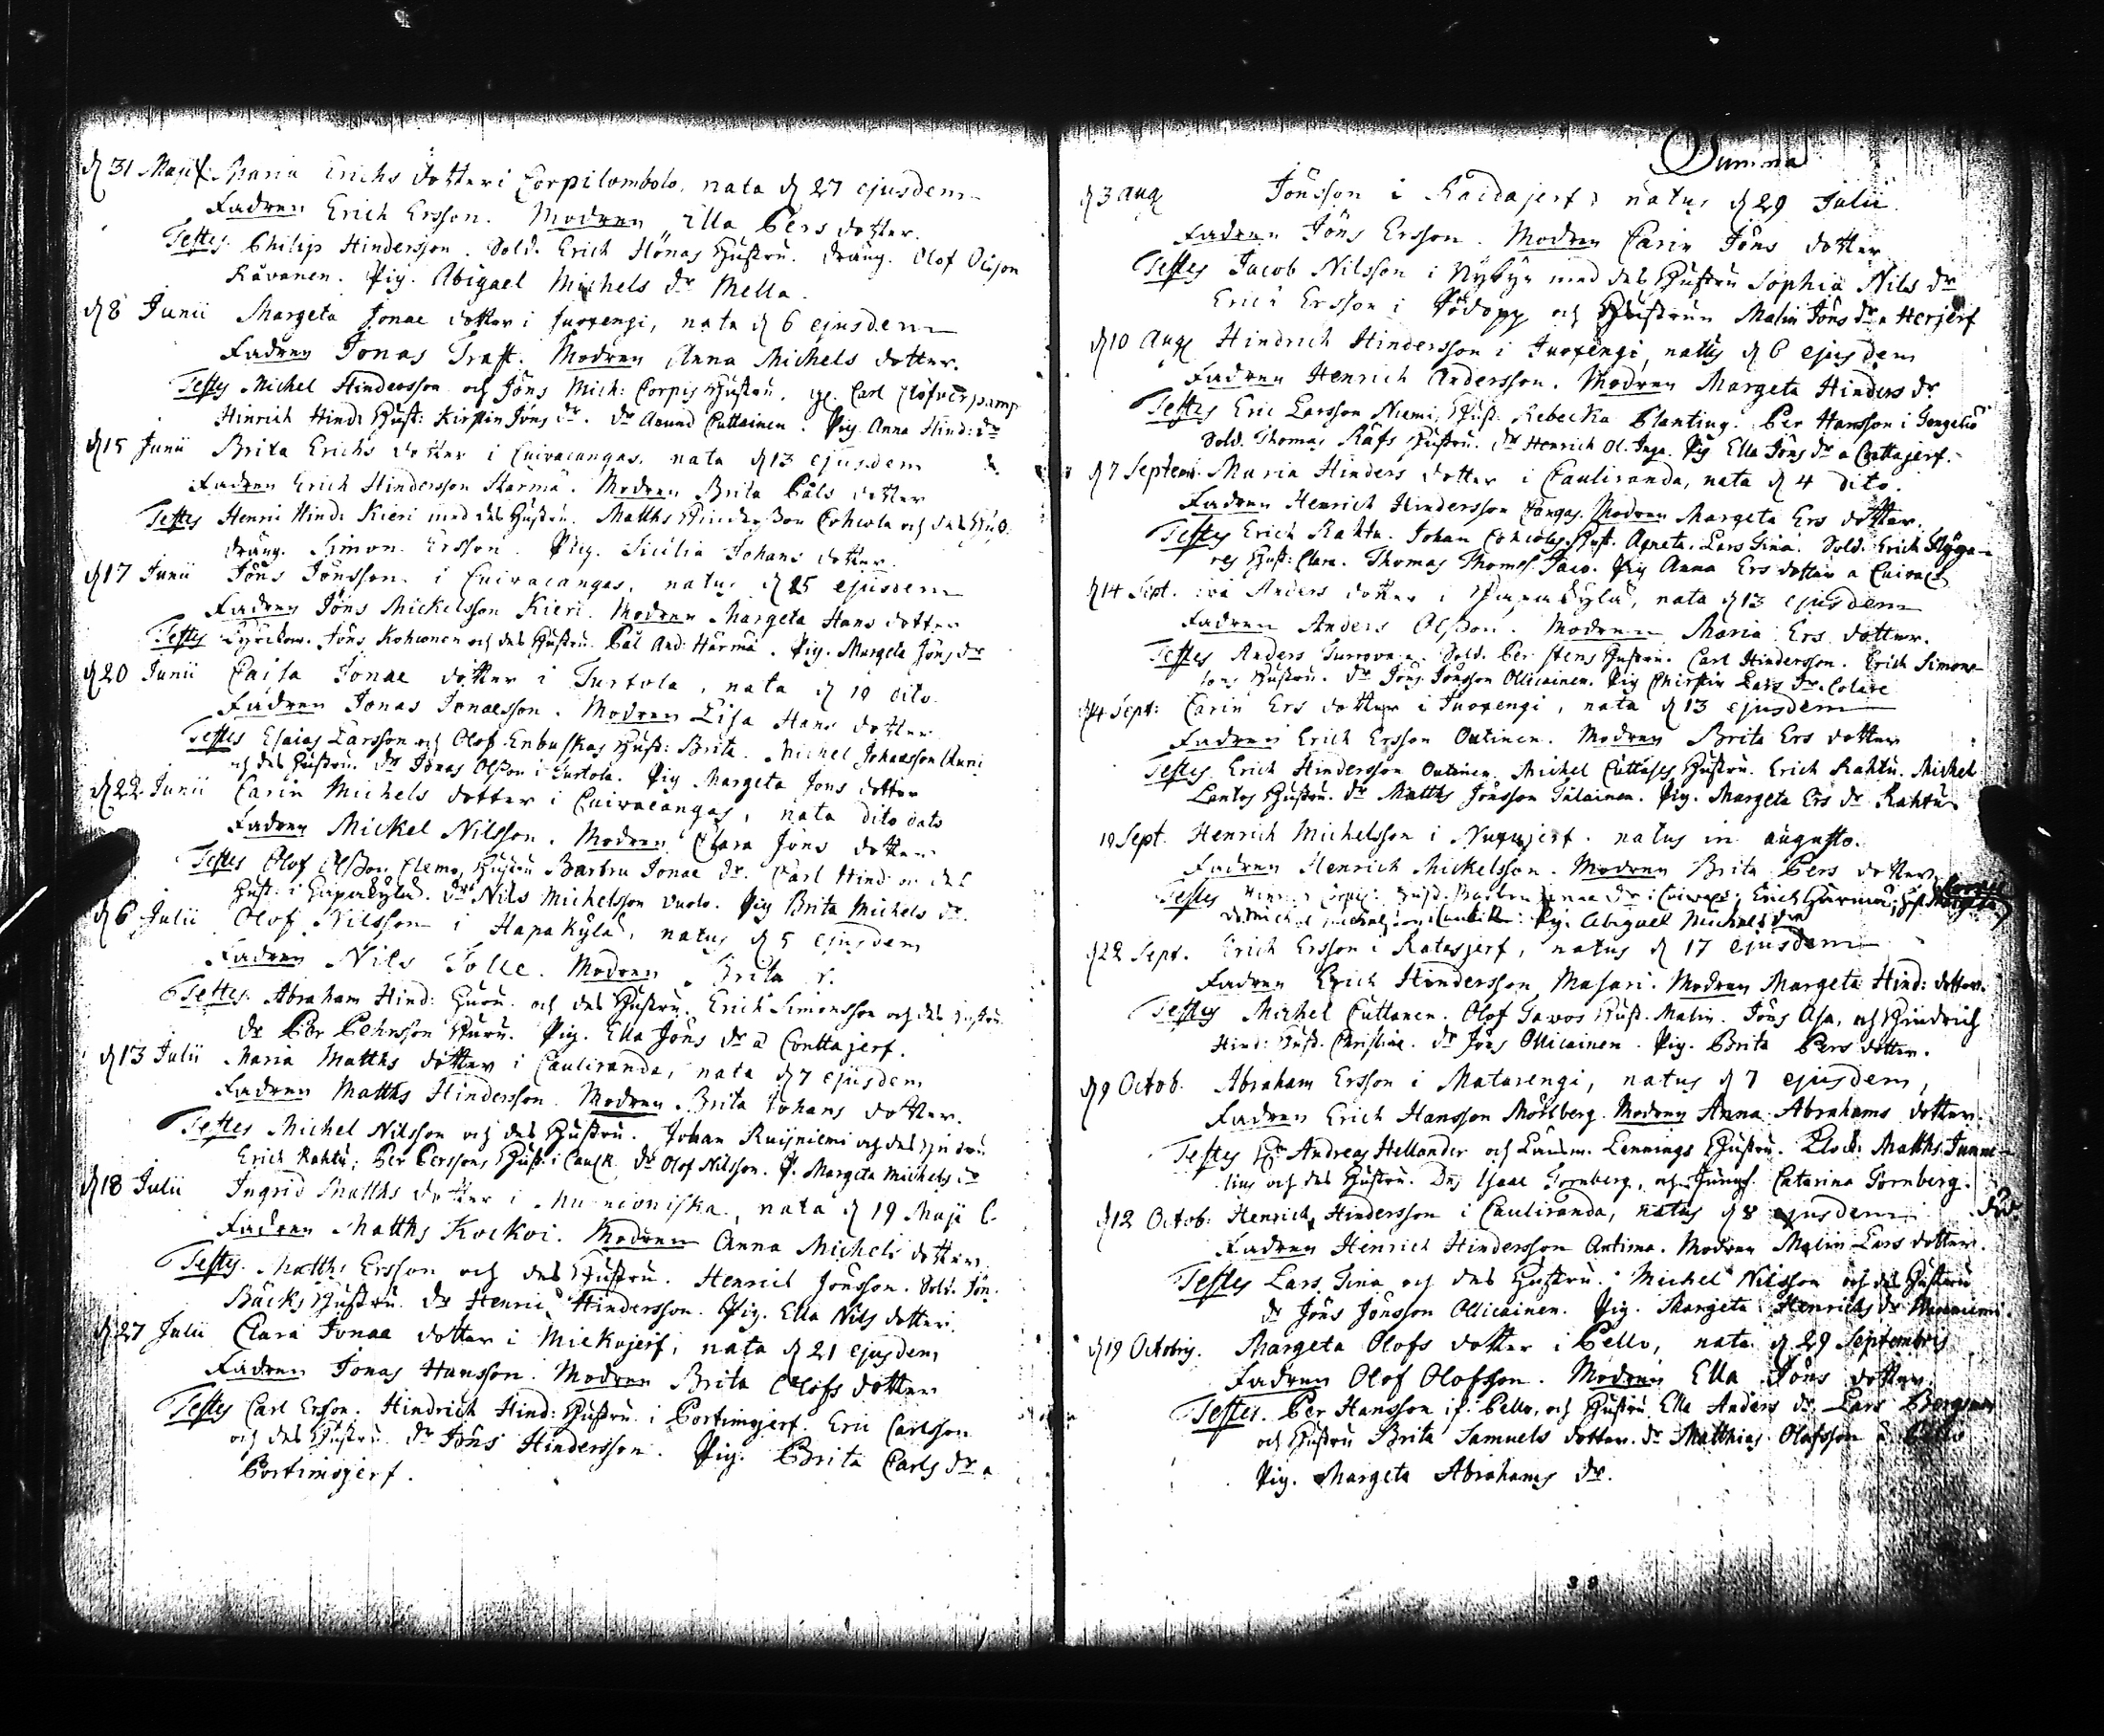 d 31 Maji. Maria Erichs dotter i Corpilombolo, nata d 27 ejusdem
Fadren Erich Ersson. Modren Ella Pers dotter.
Testes. Philip Hindersson. Sold. Erich Hönas Hustru. Dräng. Olof Olsson
Råvanen. Pig. Abigael Michels dr Mella.
d 8 Junii Margeta Jonae dotter i Juoxengi, nata d 6 ejusdem
Fadren Jonas Graft. Modren Anna Michels dotter.
Testes Michel Hindersson och Jöns Mich: Corpis Hustru. Carl
Hinrich Hind: Hust: Kirstin Jöns dr. dr Amund Cuttainen. Pig. Anna Hind: dr
d 15 Junii Brita Erichs dotter i Cuivacangas, nata d 13 ejusdem
Fadren Erich Hindersson Härmä. Modren Brita Påls dotter
Testes Henric Hind: Kieri med des Hustru. Matths Hindersson Cohcola och des Hust.
dräng. Simon Ersson. Pig. Sicilia Johans dotter.
d 17 Junii Jöns Jönsson i Cuivacangas, natus d 15 ejusdem
Fadren Jöns Mickelsson Kieri. Modren Margeta Hans dotter
Testes Jöns Kohvonen och des Hustru. Pål And: Härmä. Pig. Margeta Jöns dr
d 20 Junii Caisa Jonae dotter i Turtola, nata d 19 dito
Fadren Jonas Jonaesson. Modren Lisa Hans dotter
Testes Esaias Larsson och Olof Enbuskas Hust: Brita. Michel Johansson
och des Hustru. dr Jonas Olsson i Turtola. Pig Margeta Jöns dotter
d 22 Junii Carin Michels dotter i Cuivacangas, nata dito dato
Fadren Mickel Nilsson. Modren Clara Jöns dotter
Testes Olof Olsson Clemo, Hustru Barbru Jonae dr. Carl Hind: och des
Hust. i Hapakylä. dr Nils Michelsson Vuolo. Pig Brita Michels dr.
d 6 Julii Olof Nilsson i Hapakylä, natus d 5 ejusdem
Fadren Nils Tolle. Modren Brita
Testes. Abraham Hind: Huru. och des Hustru. Erich Simonsson och des Hustru
dr Per Pehrsson Huru. Pig. Ella Jöns dr a Conttajerf.
d 13 Julii Maria Matths dotter i Cauliranda, nata d 7 ejusdem
Fadren Matths Hindersson. Modren Brita Johans dotter.
Testes Michel Nilsson och des Hustru. Johan Ruijniemi och des Hustru
Erich Rahtu, Per Perssons Hust: i Caulir. dr Olof Nilsson. P. Margeta Michels dr
d 18 Julii Ingrid Matths dotter i Muonioniska, nata d 19 Maji
Fadren Matths Kockoi. Modren Anna Michels dotter
Testes. Matths Ersson och des Hustru. Henrich Jönsson. Sold. Jön.
Bäcks Hustru. dr Henric Hindersson. Pig. Ella Nils dotter.
d 27 Julii Clara Jonae dotter i Miekojerf, nata d 21 ejusdem
Fadren Jonas Hansson. Modren Brita Olofs dotter
Testes Carl Ersson. Hindrich Hind: Hustru i Portimojerf. Eric Carlsson
och des Hustru. dr Jöns Hindersson. Pig. Brita Carls dr a
Portimojerf.
Summa
d 3 Aug Jönsson i Raidajerf, natus d 29 Julii
Fadren Jöns Ersson. Modren Carin Jöns dotter
Testes Jacob Nilsson i Nybyn med des Hustru Sophia Nils dr
Erich Ersson i Pödopp och Hustrun Malin Jöns dr a Herjerf
d 10 Aug Hindrich Hindersson i Juoxengi, natus d 6 ejusdem
Fadren Henrich Andersson. Modren Margeta Hinders dr
Testes Eric Larsson Niemi, Hust. Rebecka Planting. Per Hansson i
Sold. Thomas Räfs Hustru. dr Henrich Ol. Inga. Pig Ella Jöns dr a Conttajerf.
d 7 Septem. Maria Hinders dotter i Cauliranda, nata d 4 dito.
Fadren Henrich Hindersson Cangas. Modren Margeta Ers dotter.
Testes Erich Rahtu. Johan Cohcolas Hust. Agneta. Lars Tina. Sold. Erich
Hust: Clara. Thomas Thomes Jaco. Pig Anna Ers dotter a
d 14 Sept. Anders dotter i Papakylä, nata d 13 ejusdem
Fadren Anders Olsson. Modren Maria Ers dotter.
Testes Anders Sold. Per Stens Hustru. Carl Hindersson. Erich Simons-
sons Hustru. dr Jöns Jönsson Ollicainen. Pig Chirstin Lars dr. Colare
d 14 Sept: Carin Ers dotter i Juoxengi, nata d 13 ejusdem
Fadren Erich Ersson Outinen. Modren Brita Ers dotter
Testes. Erich Hindersson Outinen. Michel Cuttases Hustru. Erich Rahtu. Michel
Lantos Hustru. dr Matths Jönsson Tulainen. Pig. Margeta Ers dr Rahtu
19 Sept. Henrich Michelsson i natus in augusto.
Fadren Henrich Mickelsson. Modren Brita Pers dotter
Testes Hust. Barbru Jonae dr i Erich Härmä, Hust. Margeta
Pig. Abigael Michels dr
d 22 Sept. Erich Ersson i Ratasjerf, natus d 17 ejusdem
Fadren Erich Hindersson Masari. Modren Margeta Hind: dotter.
Testes Michel Cuttanen. Olof Tawos Hust. Malin. Jöns Asa, och Hindrich
Hind: Hust. Christine. dr Jöns Ollicainen. Pig. Brita Pers dotter.
d 9 Octob. Abraham Ersson i Matarengi, natus d 7 ejusdem,
Fadren Erich Hansson Mörtberg. Modren Anna Abrahams dotter.
Testes Hr Andreas Hellander och Länsm. Lennings Hustru. Klock: Matths Junne-
lius och des Hustru. Isaac Tornberg, och Jungf. Catarina Tornberg.
d 12 Octob: Henrich Hindersson i Cauliranda, natus d 8 ejusdem
Fadren Henrich Hindersson Antima. Modren Malin Lars dotter.
Testes Lars Tina och des Hustru. Michel Nilsson och des Hustru
dr Jöns Jönsson Ollicainen. Pig. Margeta Henrichs dr
d 19 Octobris. Margeta Olofs dotter i Pello, nata d 29 Septembris
Fadren Olof Olofsson. Modren Ella Jöns dotter
Testes. Per Hansson i Pello, och Hustru Ella Anders dr. Lars Bergman
och Hustru Brita Samuels dotter. dr Matthias Olofsson a Pello
Pig. Margeta Abrahams dr.